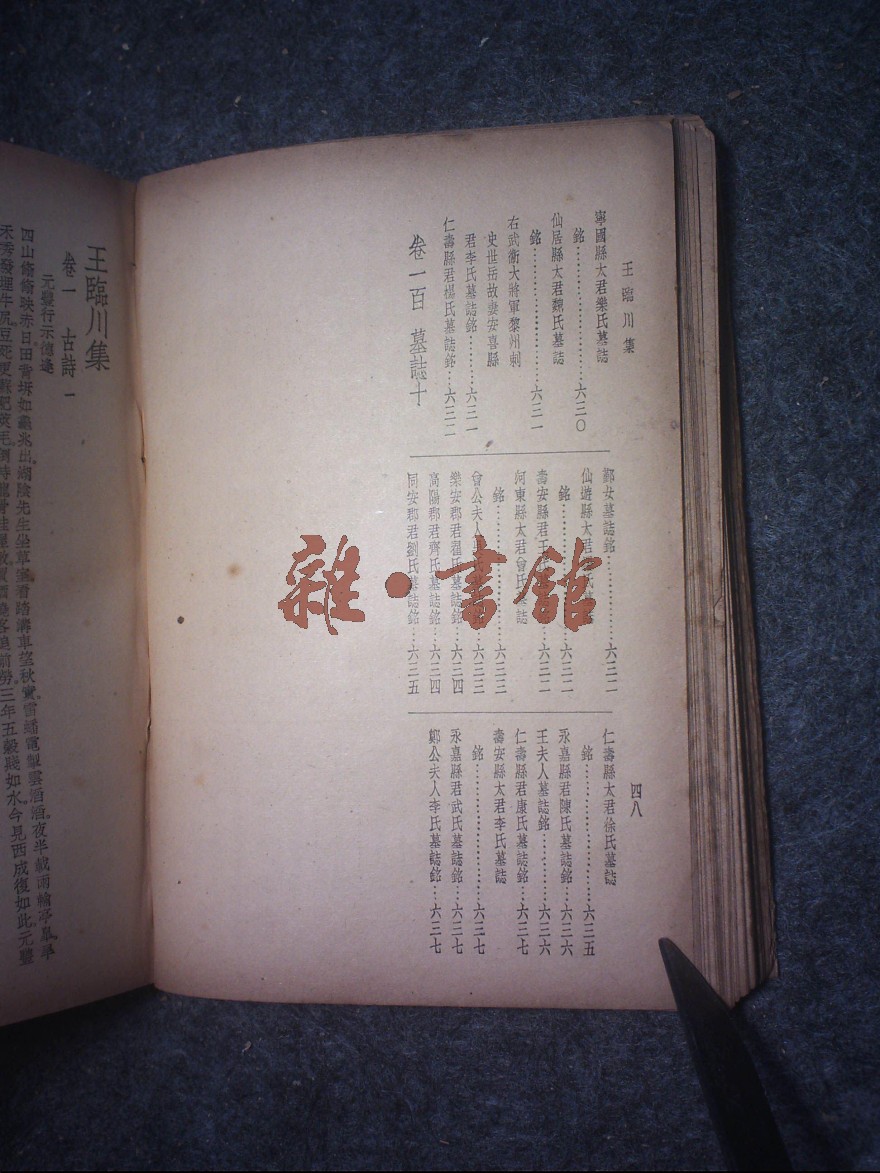 王臨川集
四八
寧國縣太君樂氏墓誌
銘…………六三〇
仙居縣太君魏氏墓誌
銘…………六三一
右武衛大將軍黎州刺
史世岳故妻安喜縣
君李氏墓誌銘…六三一
仁壽縣君楊氏墓誌銘…六三二
卷一百 墓誌十
鄞女墓誌銘…………六三二
仙遊縣太君 氏墓誌
銘…………六三二
壽安縣君王 六三二
河東縣太君曾氏墓誌
銘…………六三三
曾公夫人 六三三
樂安郡君翟氏墓誌銘…六三四
高陽郡君齊氏墓誌銘…六三四
同安郡君劉氏墓誌銘…六三五
仁壽縣太君徐氏墓誌
銘…………六三五
永嘉縣君陳氏墓誌銘…六三六
王夫人墓誌銘…………六三六
仁壽縣君康氏墓誌銘…六三七
壽安縣太君李氏墓誌
銘…………六三七
永嘉縣君武氏墓誌銘…六三七
鄭公夫人李氏墓誌銘…六三七
王臨川集
卷一 古詩一
元豐行示德逢
四山翛翛映赤日田背坼如龜兆出湖陰先生坐草室看踏溝車望秋實雷蟠電掣雲滔滔夜半載雨輸亭臯旱
禾秀發埋牛尻豆死更蘇肥莢毛倒持龍骨挂屋敖買酒澆客追前勞三年五穀賤如水今見西成復如此元豐
雜·書館